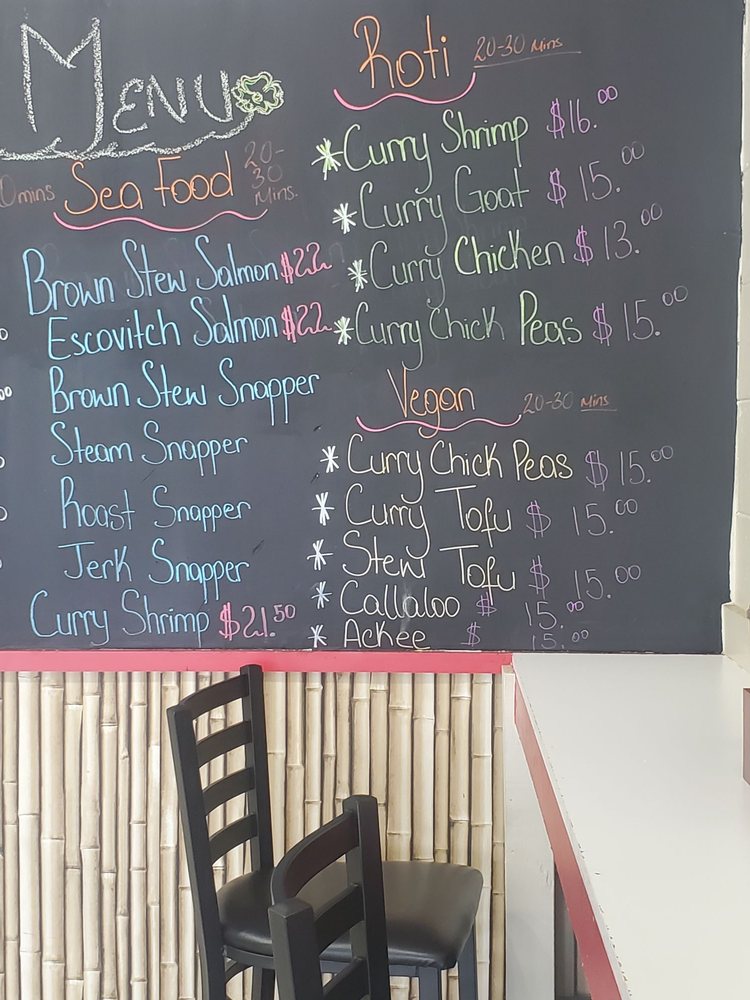 Menu
Sea Food 20-30 Mins.
0mins
Brown Stew Salmon $22
Escovitch Salmon $22
Brown Stew Snapper
Steam Snapper
Roast Snapper
Jerk Snapper
Curry Shrimp $21.50
Roti 20-30 Mins
* Curry Shrimp $16.00
* Curry Goat $15.00
* Curry Chicken $13.00
* Curry Chick Peas $15.00
Vegan 20-30 Mins
* Curry Chick Peas $15.00
* Curry Tofu $15.00
* Stew Tofu $15.00
* Callaloo $15.00
* Ackee $15.00